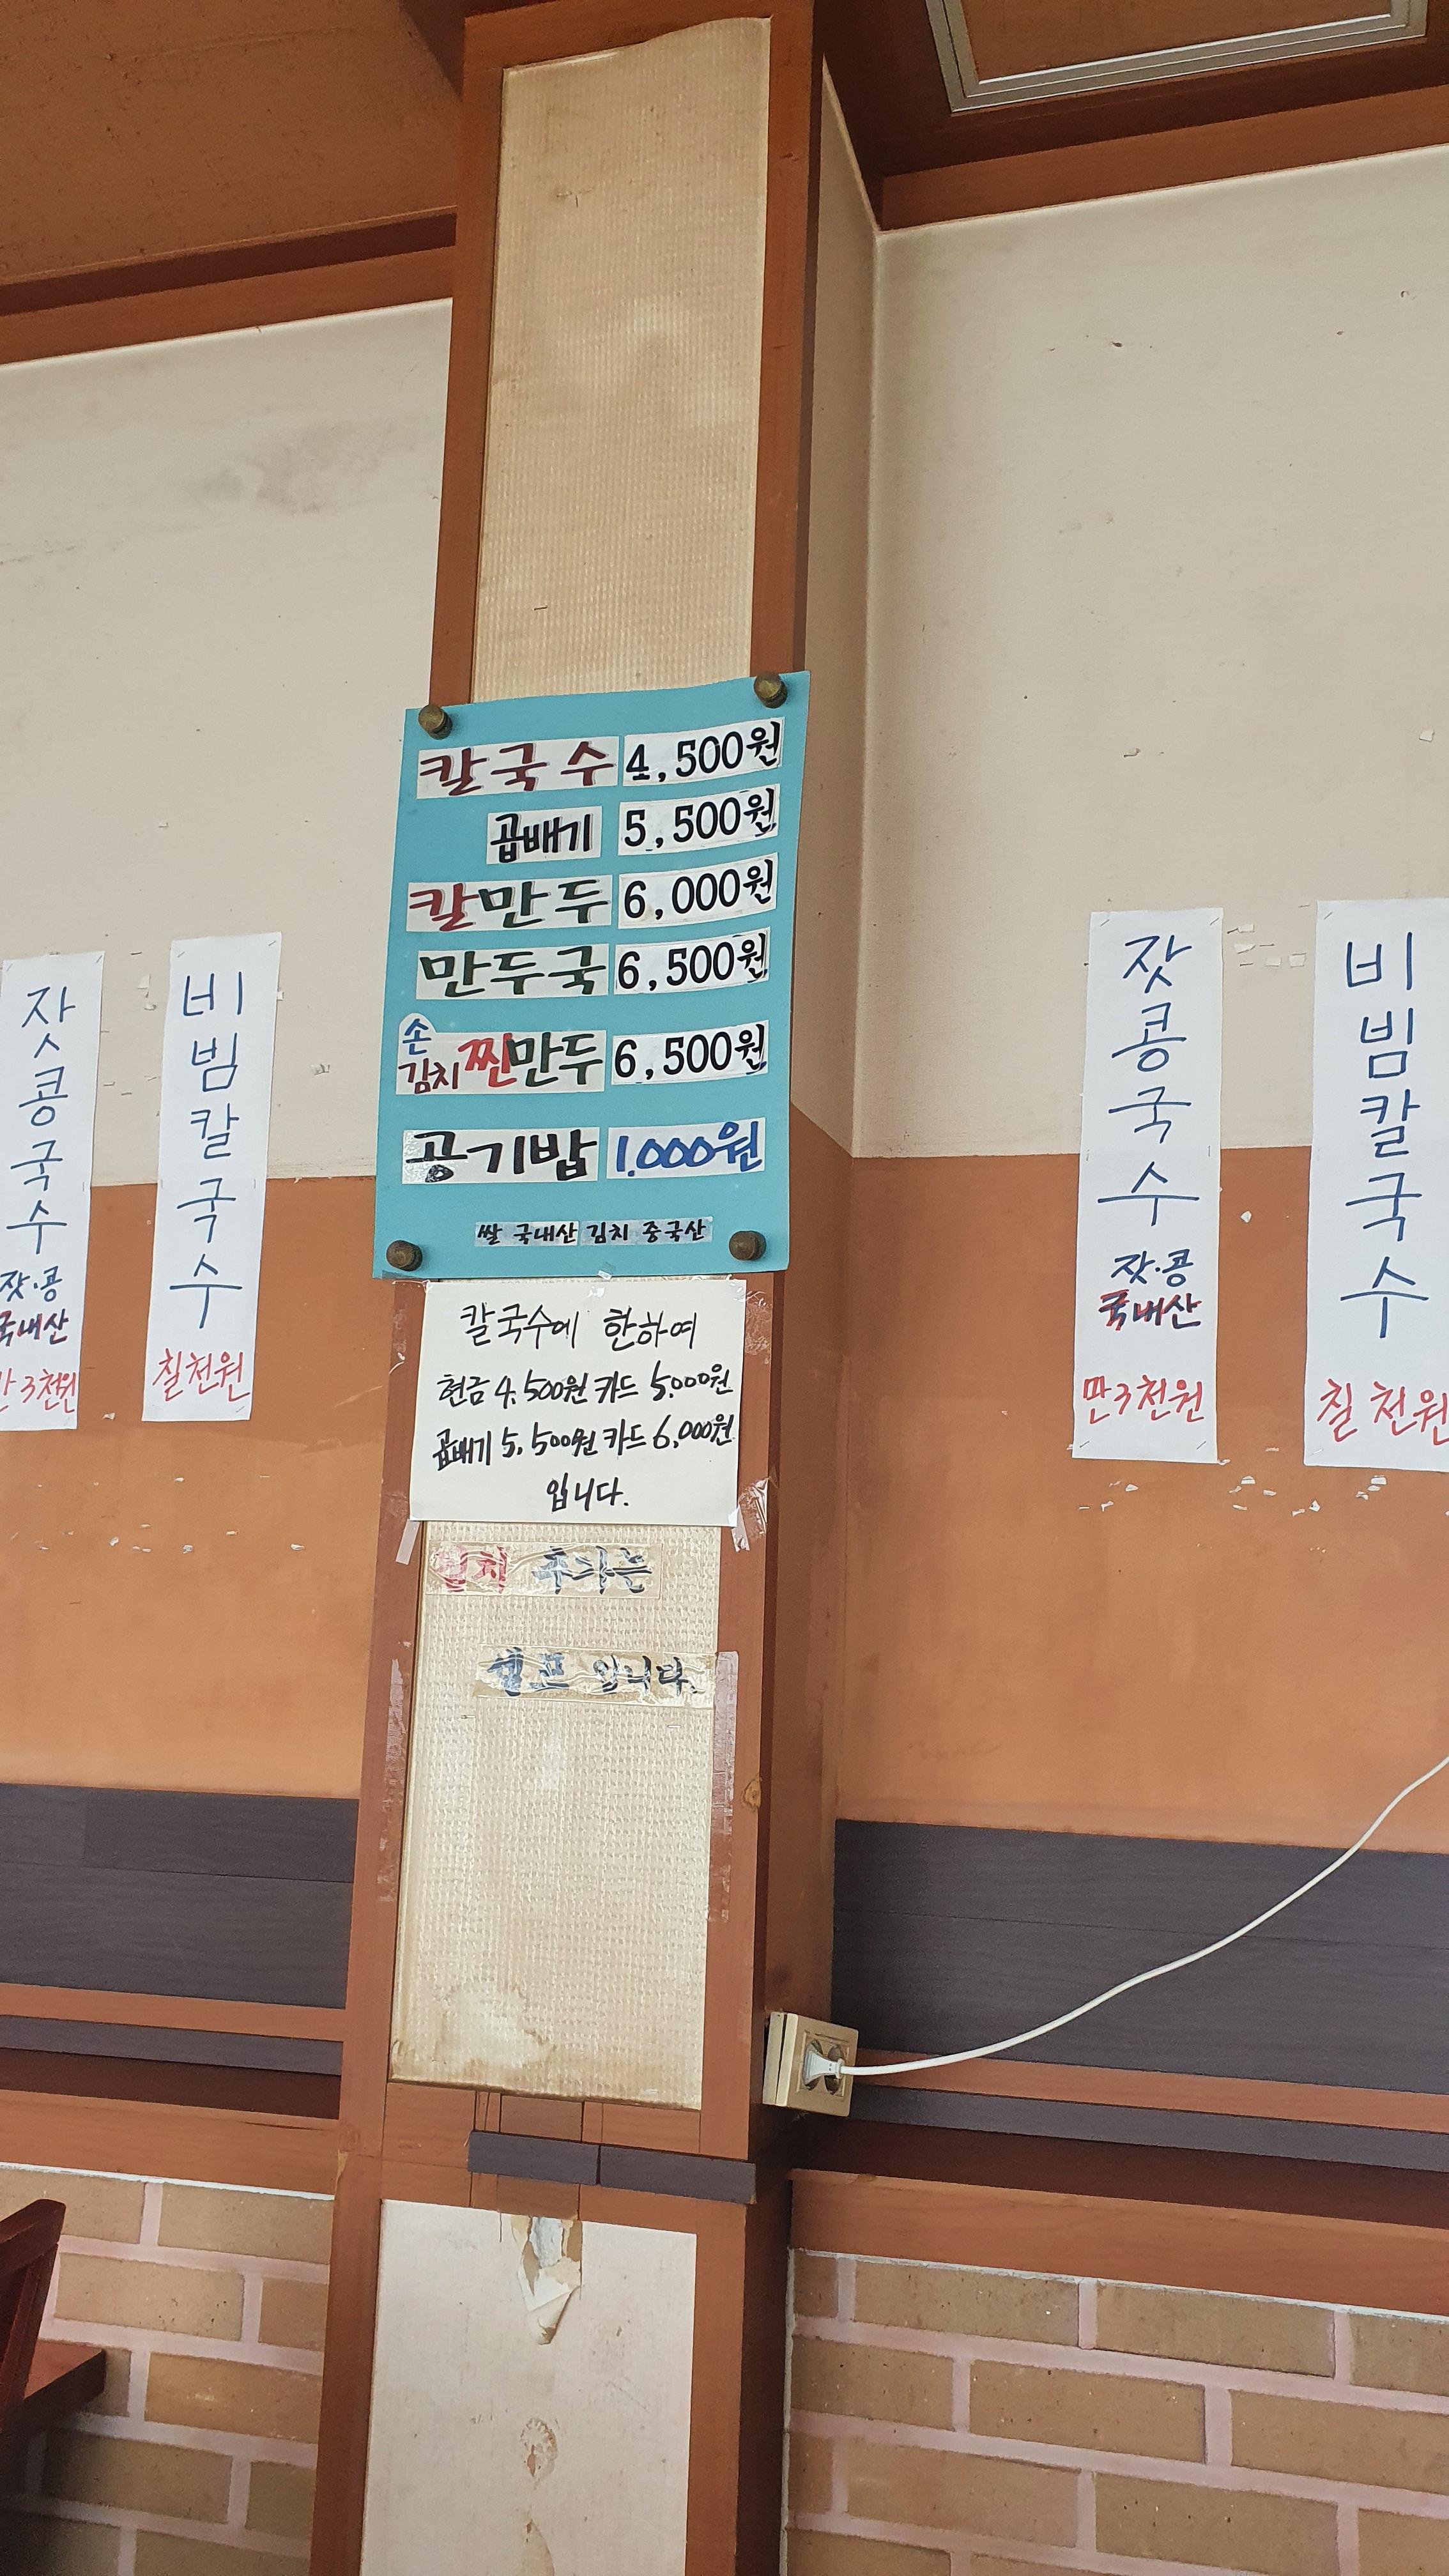 칼국수 4,500원
곱배기 5,500원
칼만두 6,000원
만두국 6,500원
손
김치 찐만두 6,500원
공기밥 1,000원
쌀 국내산 김치 중국산
칼국수에 한하여
현금 4,500원 카드 5,000원
곱배기 5,500원 카드 6,000원
입니다.
김치 추가는
셀프 입니다.
잣콩국수
잣·콩
국내산
만3천원
비빔칼국수
칠천원
잣콩국수
잣·콩
국내산
만3천원
비빔칼국수
칠천원